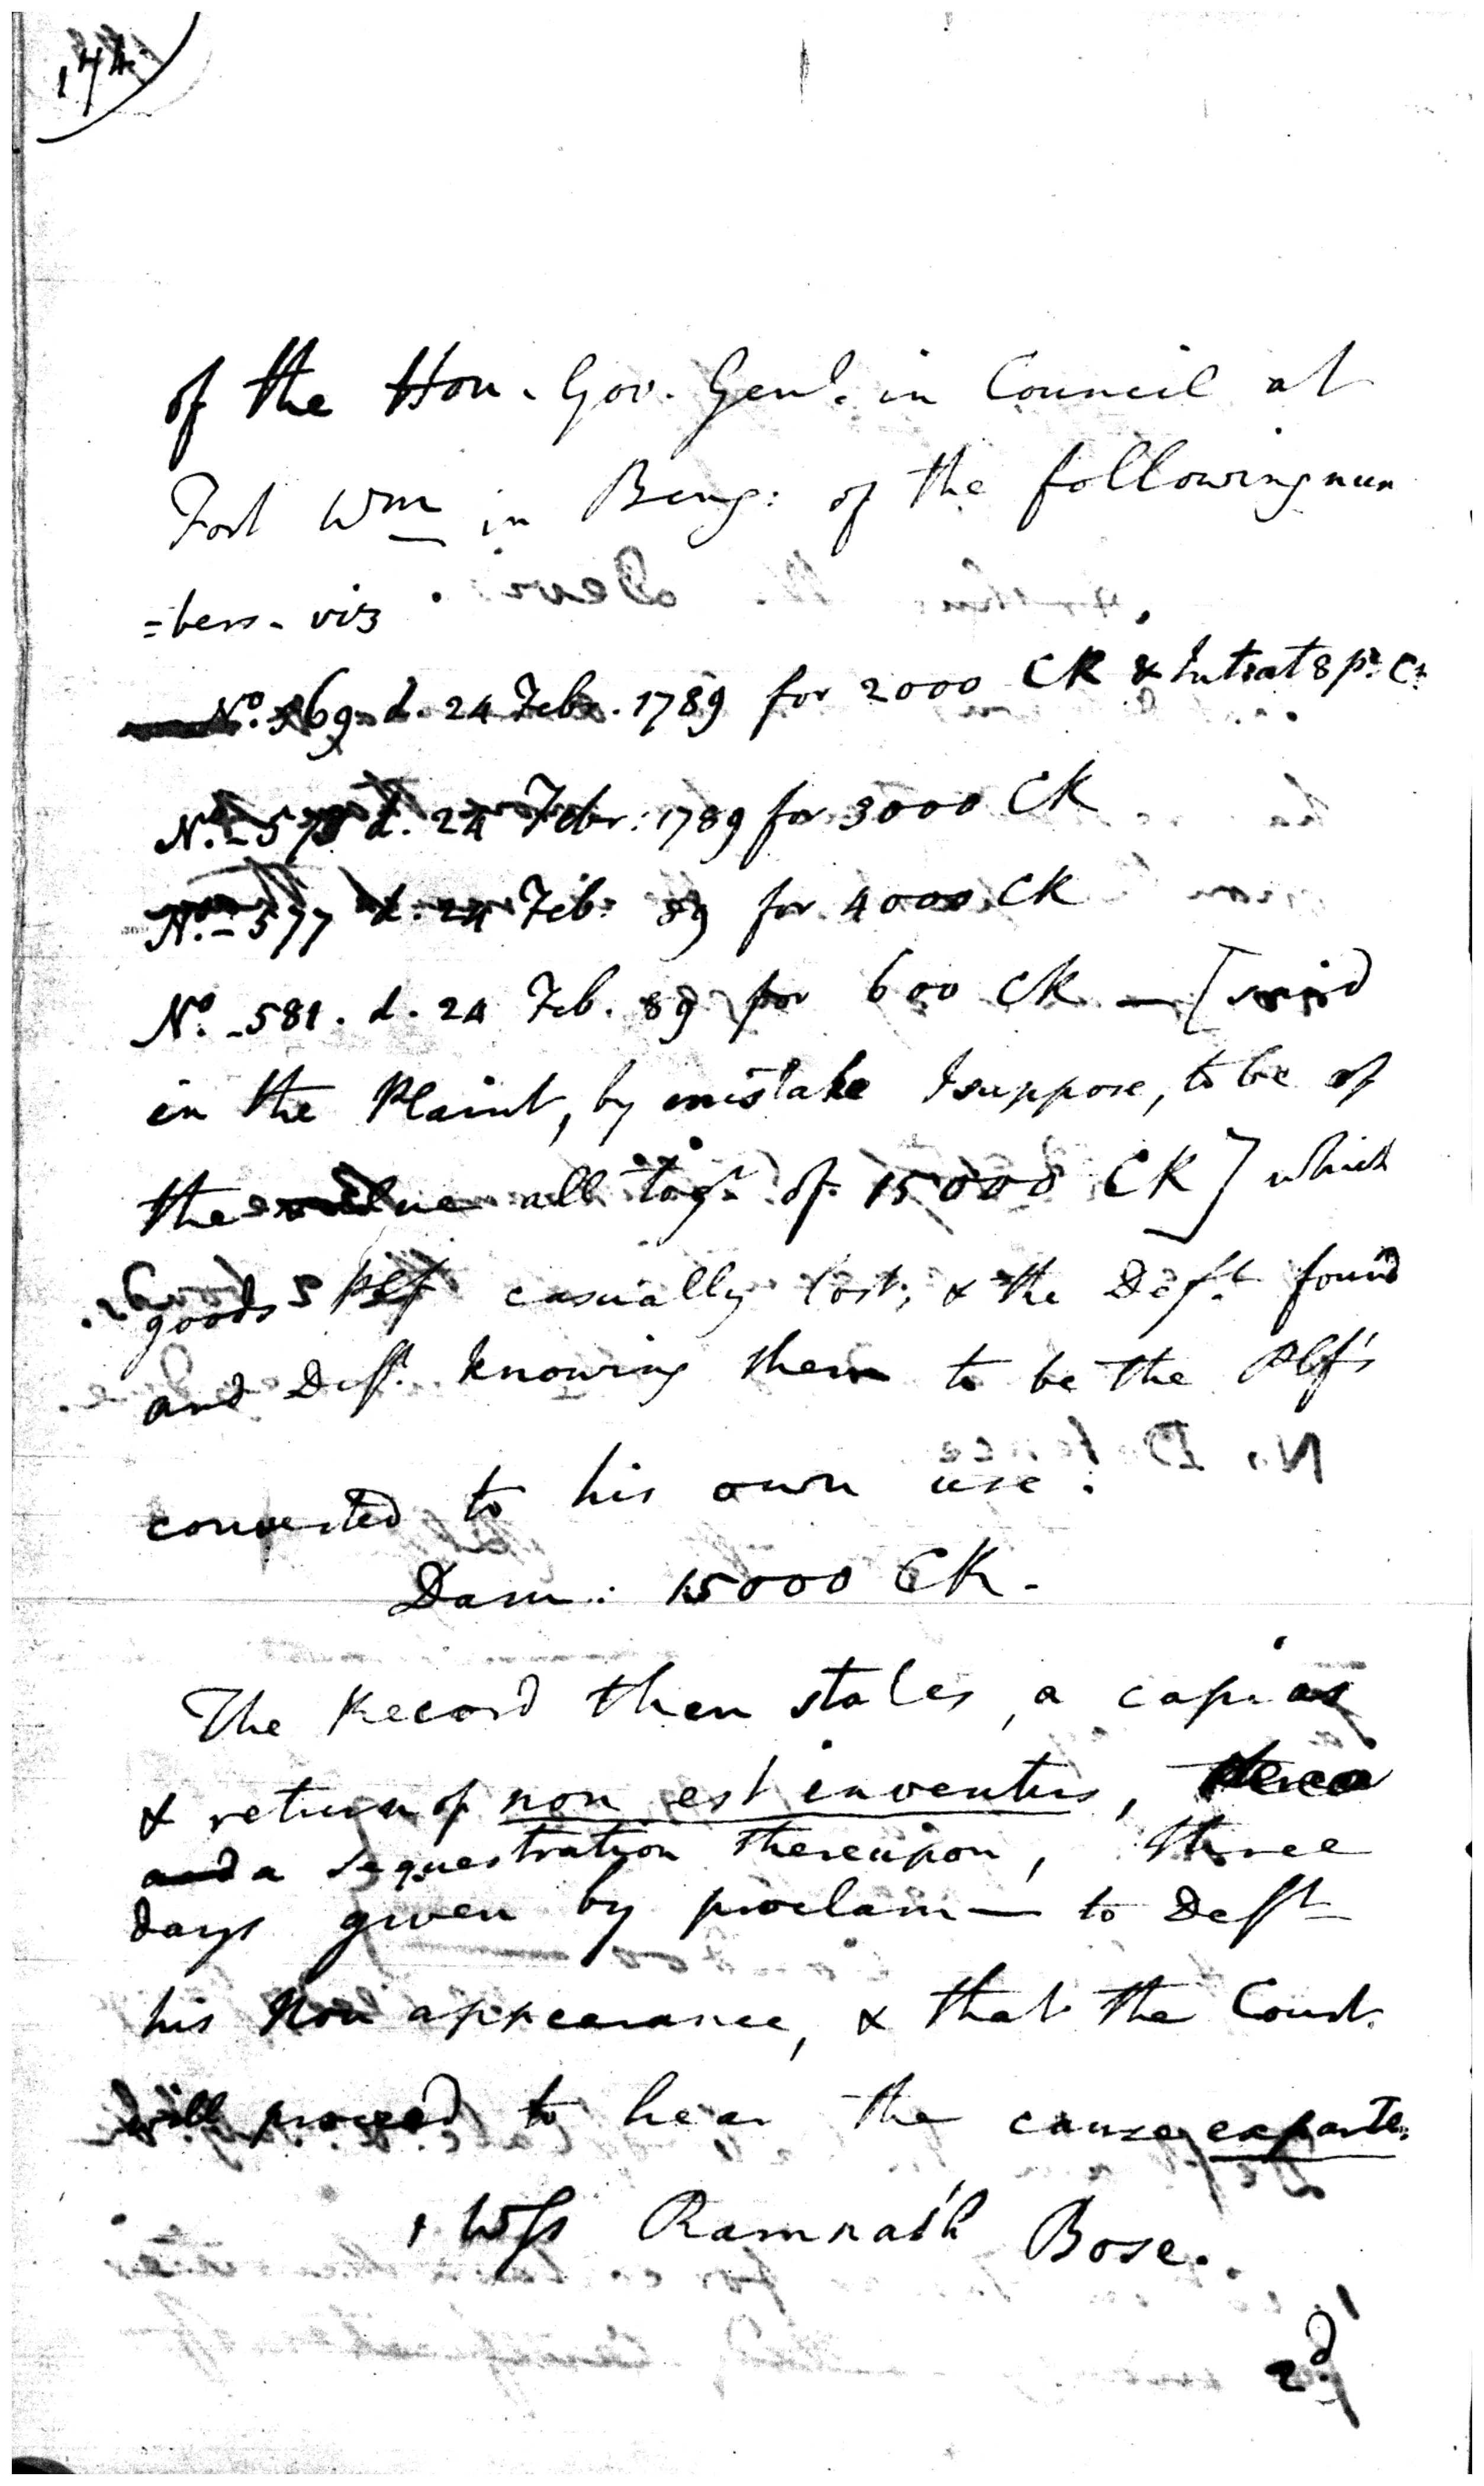 174.
of the Hon. Gov. Genl. in Council at
Fort Wm in Beng: of the following num
=bers - viz
No. 569 d. 24 Febr. 1789 for 2000 CK & Int at 8 pr. Ct
No. - 573 d. 24 Febr: 1789 for 3000 CK
No. - 577 d. 24 Feb: 89 for 4000 CK
No. - 581. d. 24 Feb. 89 for 600 CK — [said
in the Plaint, by mistake I suppose, to be of
the value all togr. of 15000 CK] which
goods Plf casually lost, & the Deft. found
and Deft. knowing them to be the Plf's
converted to his own use.
Dam: 15000 CK.
The Record then states, a capias
& return of non est inventus,
and a sequestration thereupon, three
days given by proclam— to Deft
his Non appearance, & that the Court.
will proceed to hear the cause exparte.
1 Wss Ramnath Bose.
2d